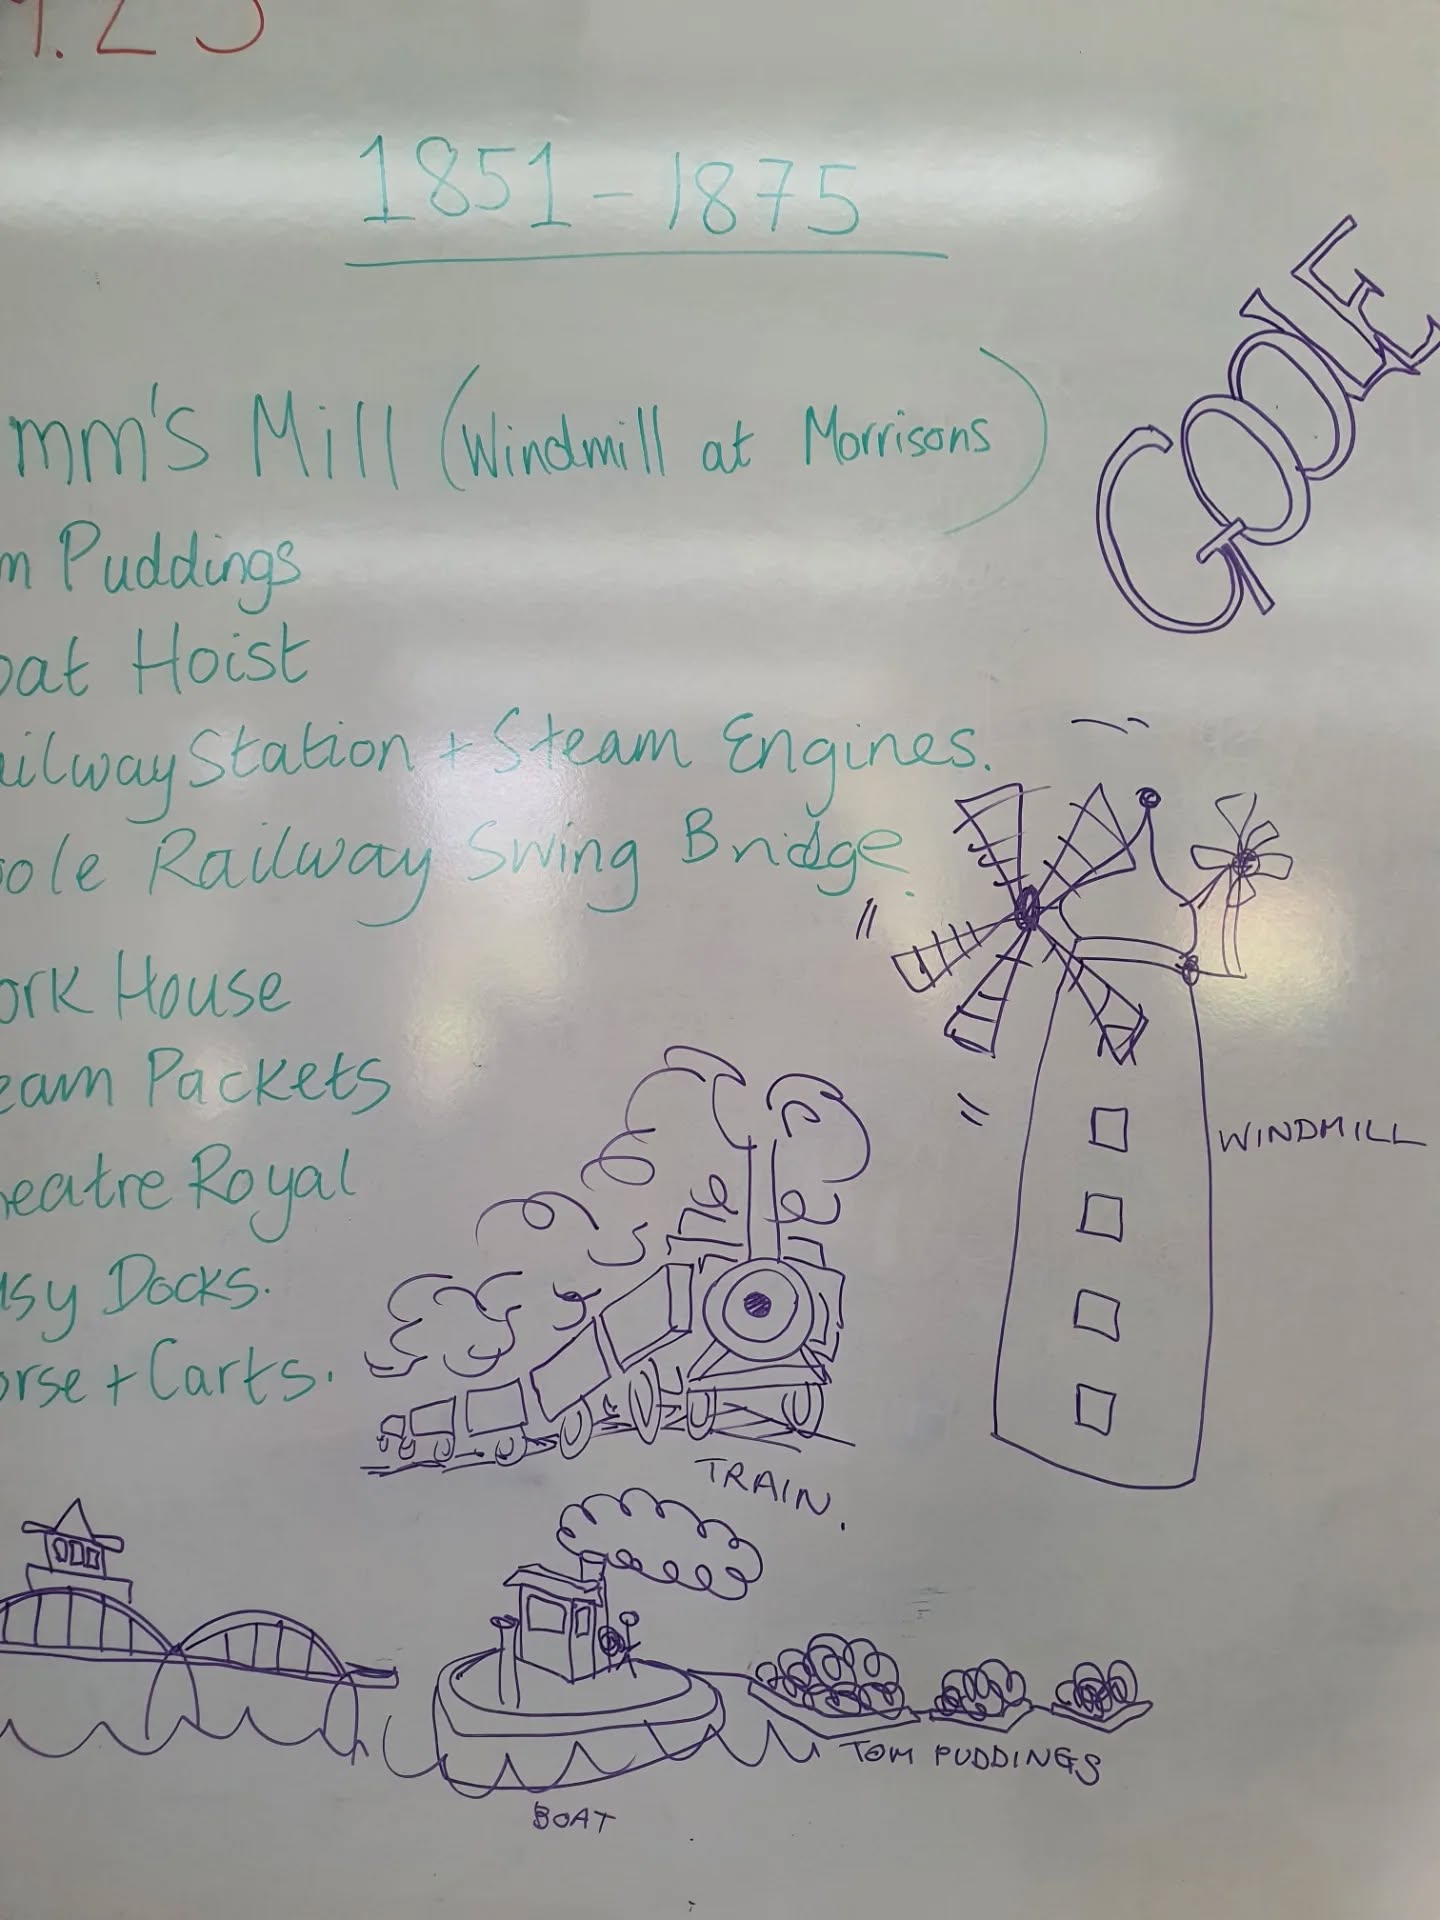 4.25
1851-1875
GOOLE
mm's Mill (Windmill at Morrisons)
m Puddings
oat Hoist
ailway Station + Steam Engines.
oole Railway Swing Bridge.
ork House
eam Packets
heatre Royal
usy Docks.
orse + Carts.
WINDMILL
TRAIN.
TOM PUDDINGS
BOAT